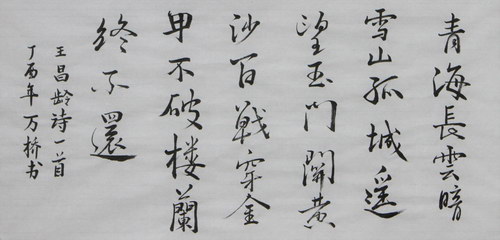 青海長雲暗
雪山孤城遥
望玉门關黄
沙百戰穿金
甲不破楼蘭
終不還
王昌龄詩一首
丁酉年万桥书